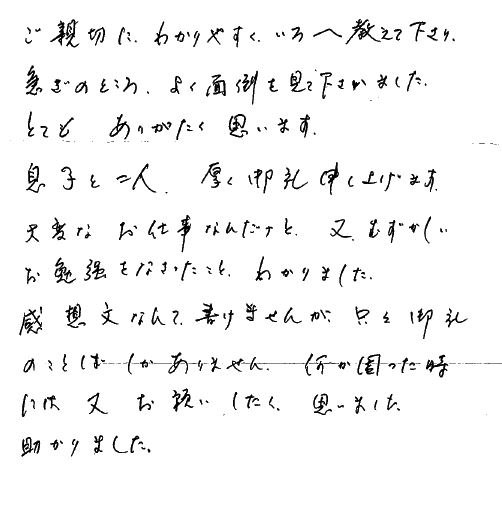 ご親切に、わかりやすく、いろへ教えて下さり、
急ぎのところ、よく面倒を見て下さいました。
とても ありがたく 思います。
息子と二人、厚く御礼申し上げます。
大変な お仕事なんだけと、又、むずかしい
お勉強をなさったこと、わかりました。
感想文なんて、書けませんが、只々御礼
のことばしかありません。何か困った時
には 又 お願いしたく、思いました。
助かりました。